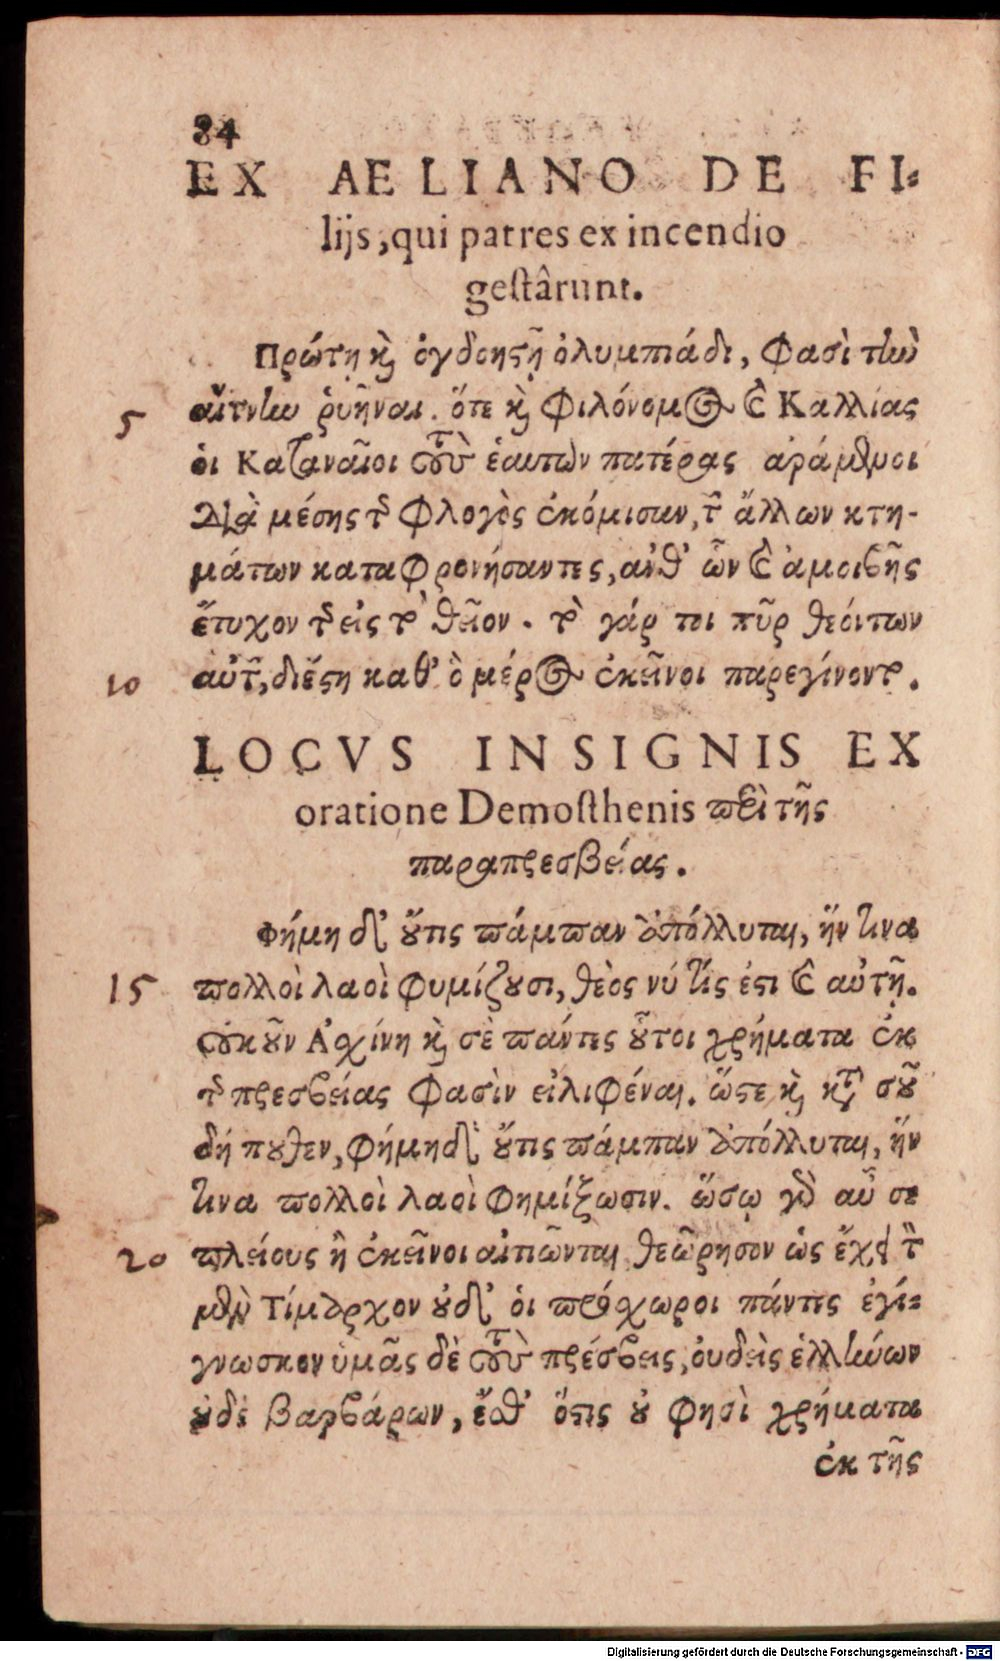 84
EX AELIANO DE FI-
lijs, qui patres ex incendio
gestârunt.
Πρώτῃ καὶ ὀγδοηστῇ ὀλυμπιάδι, φασὶ τὴν
5 αἴτνην ῥυῆναι. ὅτε καὶ Φιλόνομος καὶ Καλλίας
ὁι Καταναῖοι τοὺς ἑαυτῶν πατέρας αράμενοι
διὰ μέσης τῆς φλογὸς ἐκόμισαν, τῶν ἄλλων κτη-
μάτων καταφρονήσαντες, ἀνθ’ ὧν καὶ ἀμοιβῆς
ἔτυχον τῆς εἰς τὸ θεῖον. τὸ γάρ τοι πῦρ θεόντων
10 αὐτῶν, διέστη καθ’ ὃ μέρος ἐκεῖνοι παρεγίνοντο.
LOCVS INSIGNIS EX
oratione Demosthenis περὶ τῆς
παραπρεσβείας.
Φήμη δ’ οὔτις πάμπαν ἀπόλλυται, ἥν τινα
15 πολλοὶ λαοὶ φυμίζουσι, θεὸς νύ τίς ἐστι καὶ αὐτή.
οὐκοῦν Αἰσχίνη καὶ σὲ πάντες οὗτοι χρήματα ἐκ
τῆς πρεσβείας φασὶν εἰλιφέναι. ὥστε καὶ κατὰ σοῦ
δή πουθεν, φήμη δ’ οὔτις πάμπαν ἀπόλλυται, ἥν
τινα πολλοὶ λαοὶ φημίξωσιν. ὥσῳ γὰρ αὖ σε
20 πλείους ἢ ἐκεῖνοι αἰτιῶνται θεῶρησον ὡς ἔχει τὸν
μὲν Τίμαρχον οὐδ’ ὁι πρόσχωροι πάντες ἐγί-
γνωσκον ὑμᾶς δὲ τοὺς πρέσβεις, ουδεὶς ἑλλήνων
οὐδὲ βαρβάρων, ἔσθ’ ὅστις οὐ φησὶ χρήματα
ἐκ τῆς
Digitalisierung gefördert durch die Deutsche Forschungsgemeinschaft - DFG